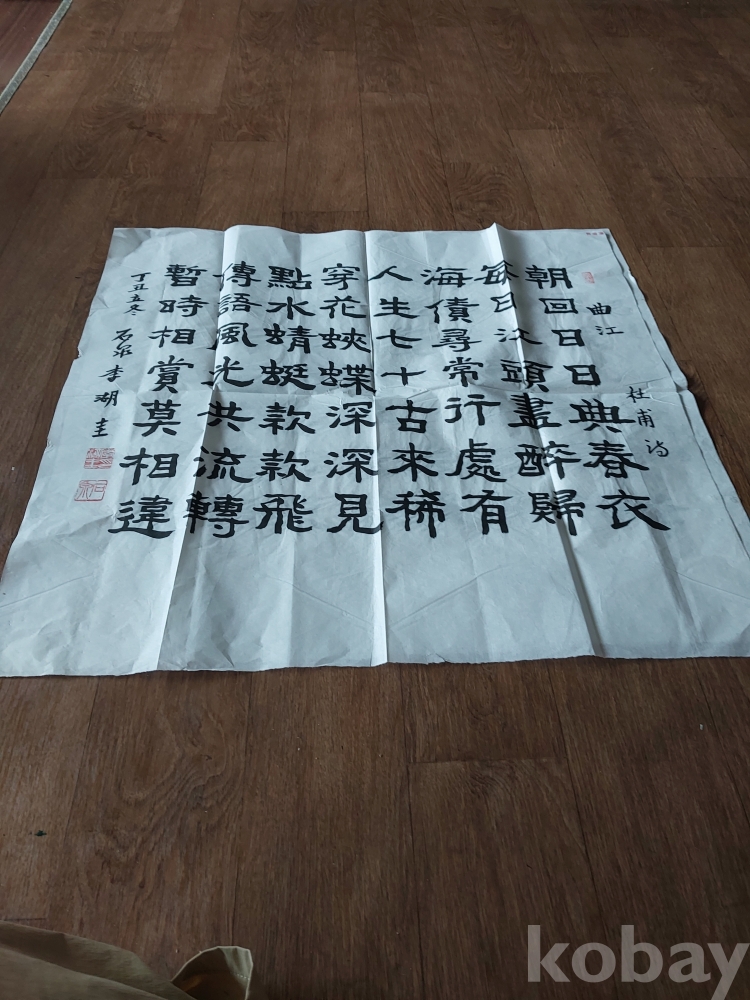 曲江 杜甫诗
朝回日日典春衣
每日江頭盡醉歸
海債尋常行處有
人生七十古來稀
穿花蛺蝶深深見
點水蜻蜓款款飛
傳語風光共流轉
暫時相賞莫相違
丁丑冬 石泉 李瑚圭
kobay